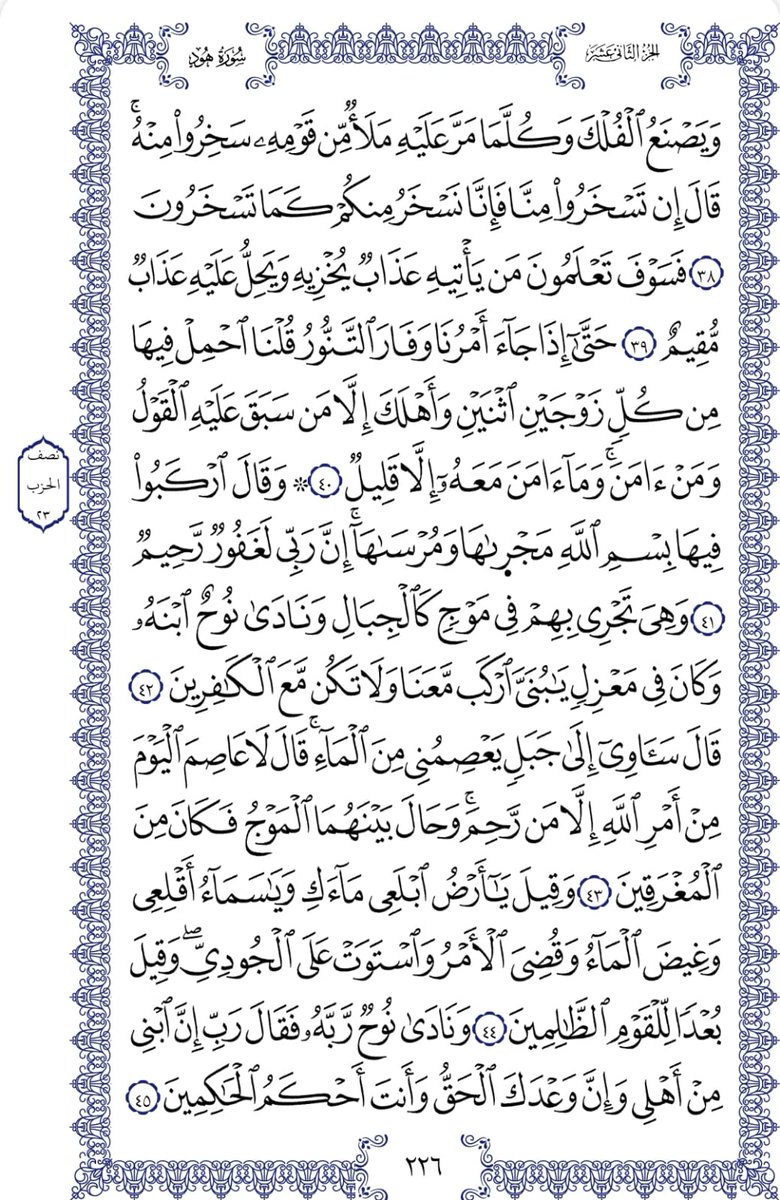 الجزء الثاني عشر
سورة هود
وَيَصۡنَعُ ٱلۡفُلۡكَ وَكُلَّمَا مَرَّ عَلَيۡهِ مَلَأٞ مِّن قَوۡمِهِۦ سَخِرُواْ مِنۡهُۚ
قَالَ إِن تَسۡخَرُواْ مِنَّا فَإِنَّا نَسۡخَرُ مِنكُمۡ كَمَا تَسۡخَرُونَ
٣٨ فَسَوۡفَ تَعۡلَمُونَ مَن يَأۡتِيهِ عَذَابٞ يُخۡزِيهِ وَيَحِلُّ عَلَيۡهِ عَذَابٞ
مُّقِيمٌ ٣٩ حَتَّىٰٓ إِذَا جَآءَ أَمۡرُنَا وَفَارَ ٱلتَّنُّورُ قُلۡنَا ٱحۡمِلۡ فِيهَا
مِن كُلّٖ زَوۡجَيۡنِ ٱثۡنَيۡنِ وَأَهۡلَكَ إِلَّا مَن سَبَقَ عَلَيۡهِ ٱلۡقَوۡلُ
وَمَنۡ ءَامَنَۚ وَمَآ ءَامَنَ مَعَهُۥٓ إِلَّا قَلِيلٞ ٤٠ ۞ وَقَالَ ٱرۡكَبُواْ
نصف
الحزب
٢٣
فِيهَا بِسۡمِ ٱللَّهِ مَجۡرٜىٰهَا وَمُرۡسَىٰهَآۚ إِنَّ رَبِّي لَغَفُورٞ رَّحِيمٞ
٤١ وَهِيَ تَجۡرِي بِهِمۡ فِي مَوۡجٖ كَٱلۡجِبَالِ وَنَادَىٰ نُوحٌ ٱبۡنَهُۥ
وَكَانَ فِي مَعۡزِلٖ يَٰبُنَيَّ ٱرۡكَب مَّعَنَا وَلَا تَكُن مَّعَ ٱلۡكَٰفِرِينَ ٤٢
قَالَ سَـَٔاوِيٓ إِلَىٰ جَبَلٖ يَعۡصِمُنِي مِنَ ٱلۡمَآءِۚ قَالَ لَا عَاصِمَ ٱلۡيَوۡمَ
مِنۡ أَمۡرِ ٱللَّهِ إِلَّا مَن رَّحِمَۚ وَحَالَ بَيۡنَهُمَا ٱلۡمَوۡجُ فَكَانَ مِنَ
ٱلۡمُغۡرَقِينَ ٤٣ وَقِيلَ يَٰٓأَرۡضُ ٱبۡلَعِي مَآءَكِ وَيَٰسَمَآءُ أَقۡلِعِي
وَغِيضَ ٱلۡمَآءُ وَقُضِيَ ٱلۡأَمۡرُ وَٱسۡتَوَتۡ عَلَى ٱلۡجُودِيِّۖ وَقِيلَ
بُعۡدٗا لِّلۡقَوۡمِ ٱلظَّٰلِمِينَ ٤٤ وَنَادَىٰ نُوحٞ رَّبَّهُۥ فَقَالَ رَبِّ إِنَّ ٱبۡنِي
مِنۡ أَهۡلِي وَإِنَّ وَعۡدَكَ ٱلۡحَقُّ وَأَنتَ أَحۡكَمُ ٱلۡحَٰكِمِينَ ٤٥
٢٢٦